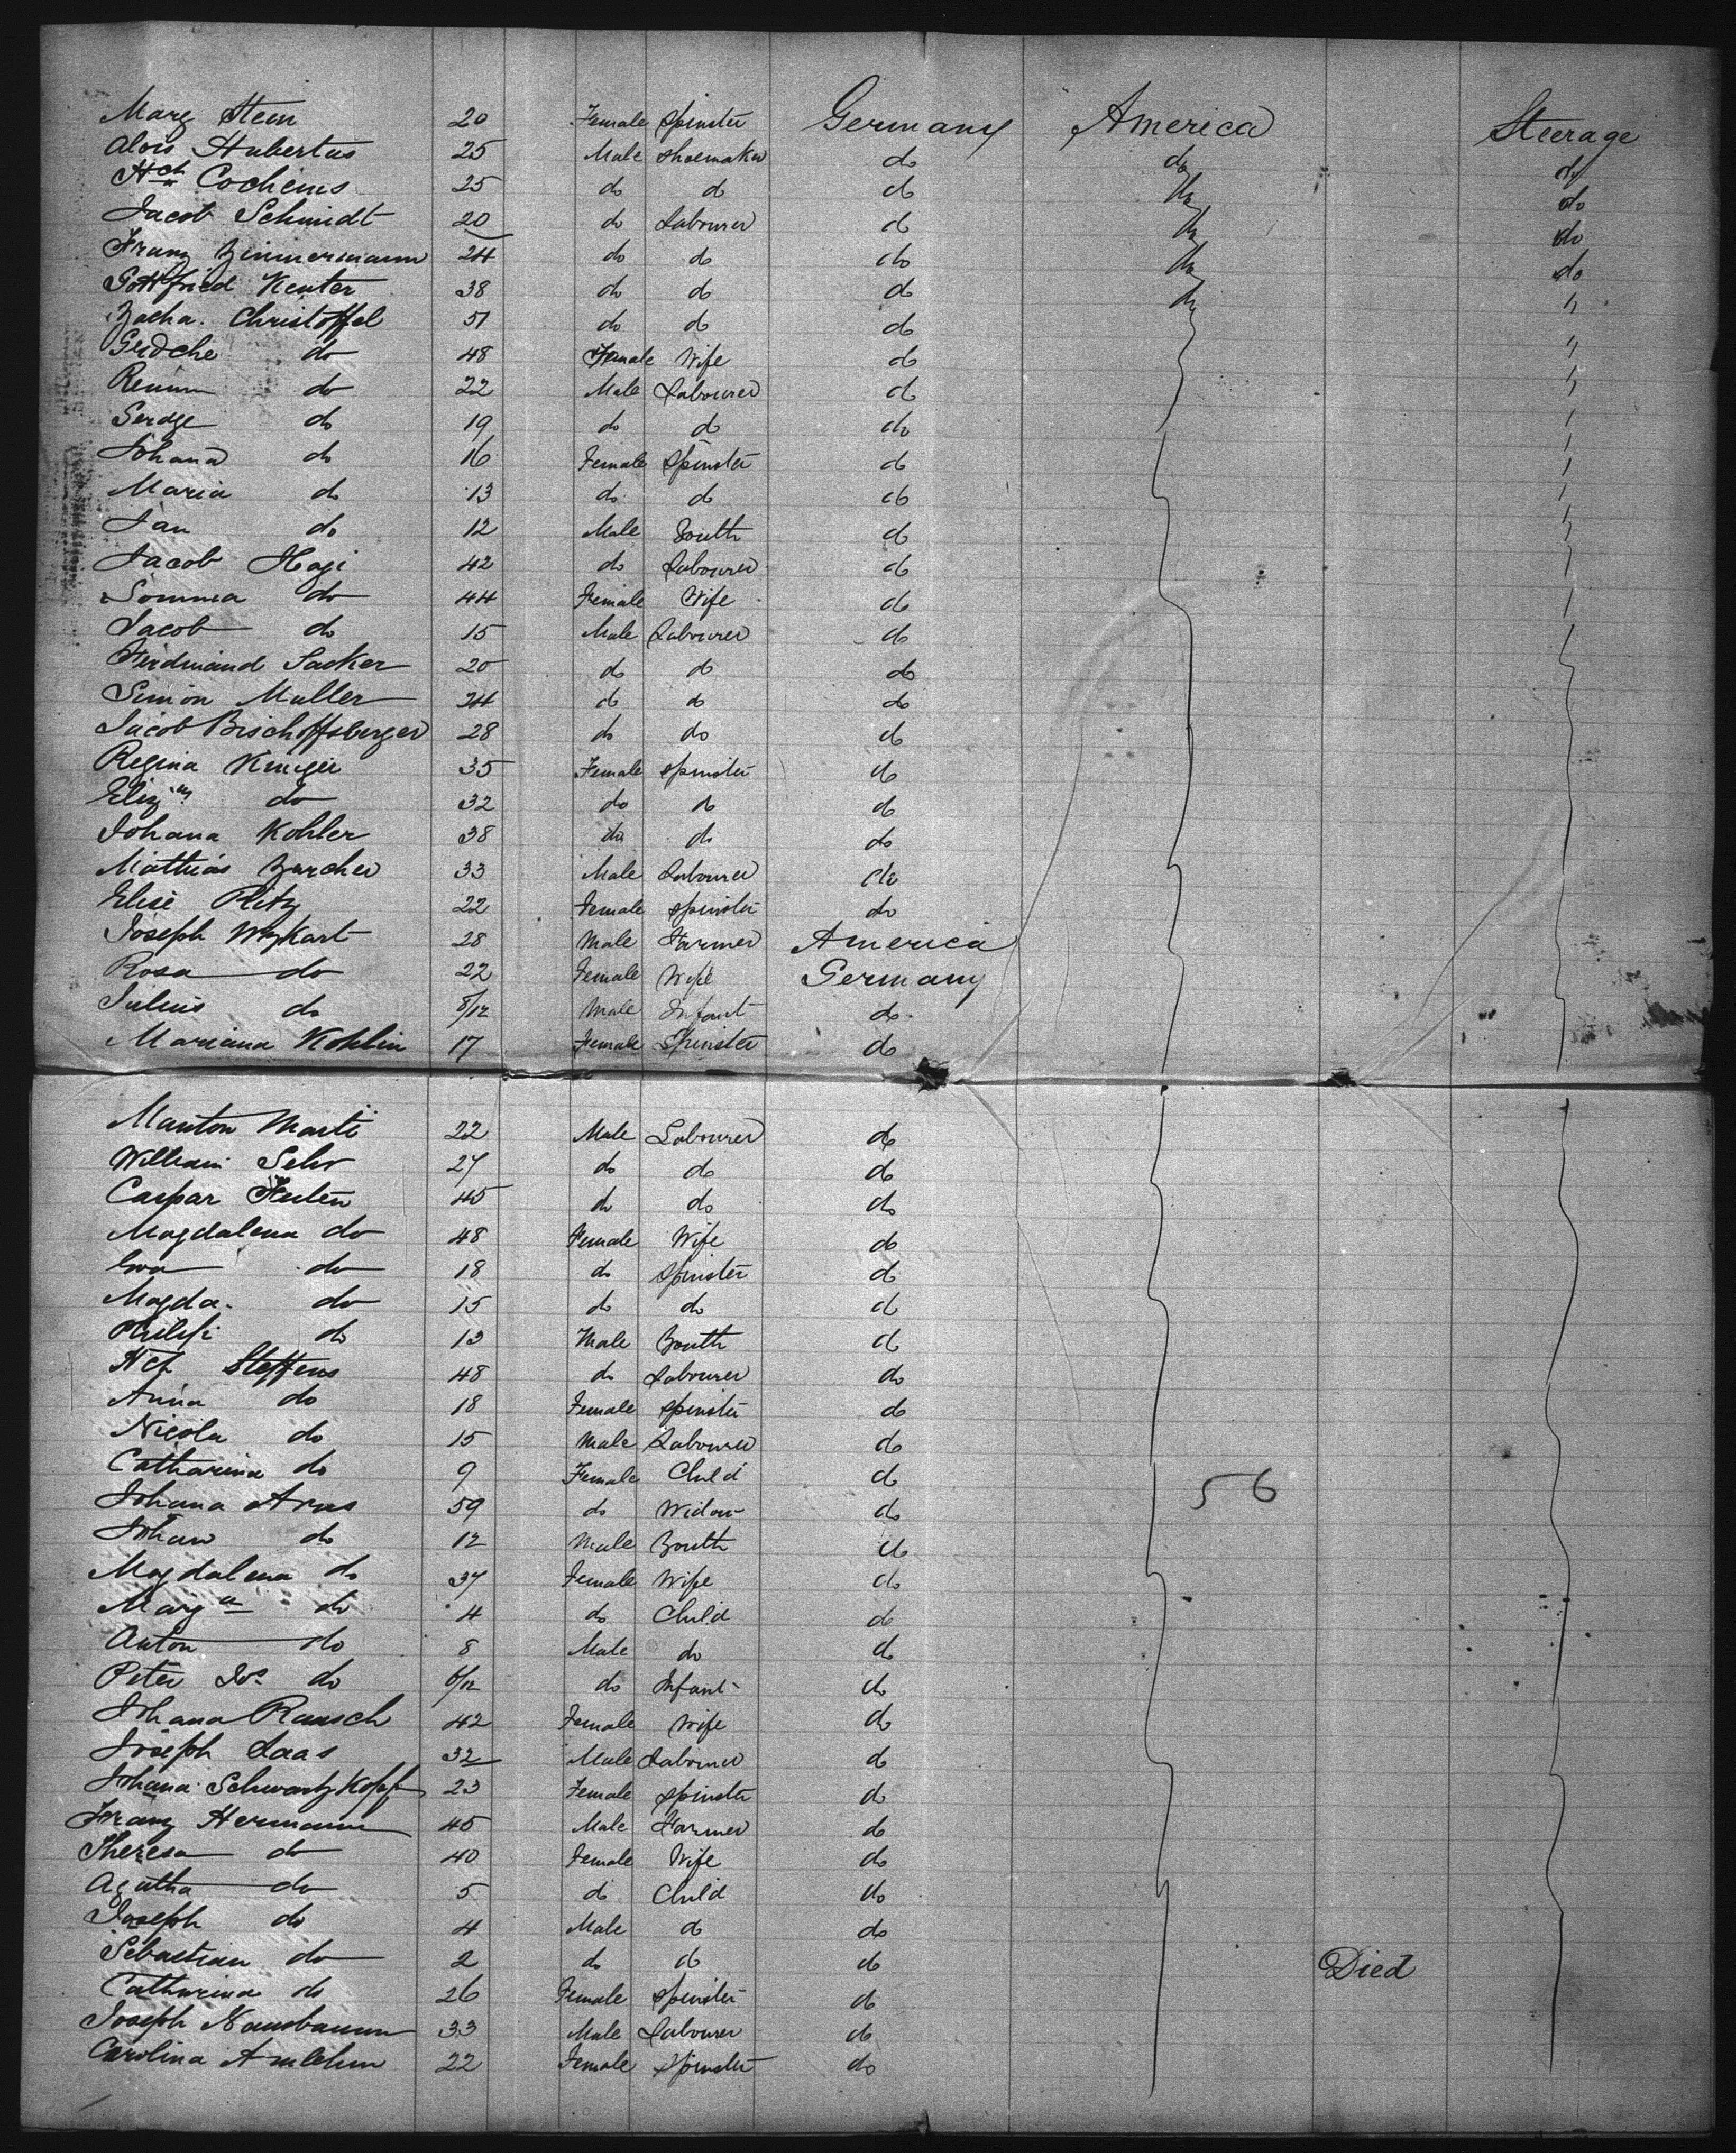 Marg Stein 20 Female Spinster Germany America Steerage
Alois Hubertus 25 Male Shoemaker do do do
Hch Cochems 25 do do do do do
Jacob Schmidt 20 do Labourer do do do
Franz Zimmermann 24 do do do do do
Gottfried Kenter 38 do do do do "
Zacha. Christoffel 51 do do do "
Gudche do 48 Female Wife do "
do 22 Male Labourer do
Serdge do 19 do do do
Johana do 16 Female Spinster do
Maria do 13 do do do
Jan do 12 Male Youth do
Jacob Hagi 42 do Labourer do
do 44 Female Wife do
Jacob do 15 Male Labourer do
Ferdinand Sacker 20 do do do
Simon Muller 24 do do do
Jacob Bischoffsberger 28 do do do
Regina 35 Female Spinster do
Eliz do 32 do do do
Johana Kohler 38 do do do
Matthias Zurcher 33 Male Labourer do
Elise Ritz 22 Female Spinster do
Joseph Wykart 28 Male Farmer America
Rosa do 22 Female Wife Germany
Julius do 8/12 Male Infant do
Mariana Kohlin 17 Female Spinster do
Manton Marti 22 Male Labourer do
William 27 do do do
Caspar 45 do do do
Magdalena do 48 Female Wife do
Eva do 18 do Spinster do
Magda. do 15 do do do
Philipi do 13 Male Youth do
Hch Steffens 48 do Labourer do
Anna do 18 Female Spinster do
Nicola do 15 Male Labourer do
Catharina do 9 Female Child do 56
Johana Arns 59 do Widow do
Johan do 12 Male Youth do
Magdalena do 37 Female Wife do
Marga do 4 do Child do
Anton do 8 Male do do
Peter Jos do 6/12 do Infant do
Johana Rausch 42 Female Wife do
Joseph Laas 32 Male Labourer do
Johana Schwartzkopf 23 Female Spinster do
Franz Hermann 45 Male Farmer do
Theresa do 40 Female Wife do
Agatha do 5 do Child do
Joseph do 4 Male do do
Sebastian do 2 do do do Died
Catharina do 26 Female Spinster do
Joseph Nausbaumn 33 Male Labourer do
Carolina 22 Female Spinster do